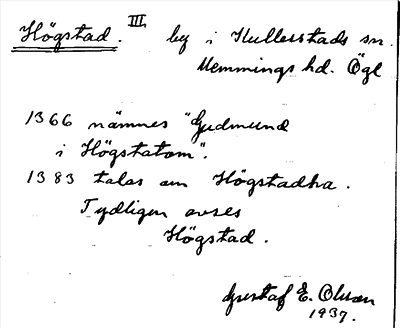 Högstad. III. by i Kullerstads sn.
Memmings hd. Ögl
1366 nämnes "Gudmund
i Högstatom".
1383 talas om Högstadha.
Tydligen avses
Högstad.
Gustaf E. Olsson
1937.